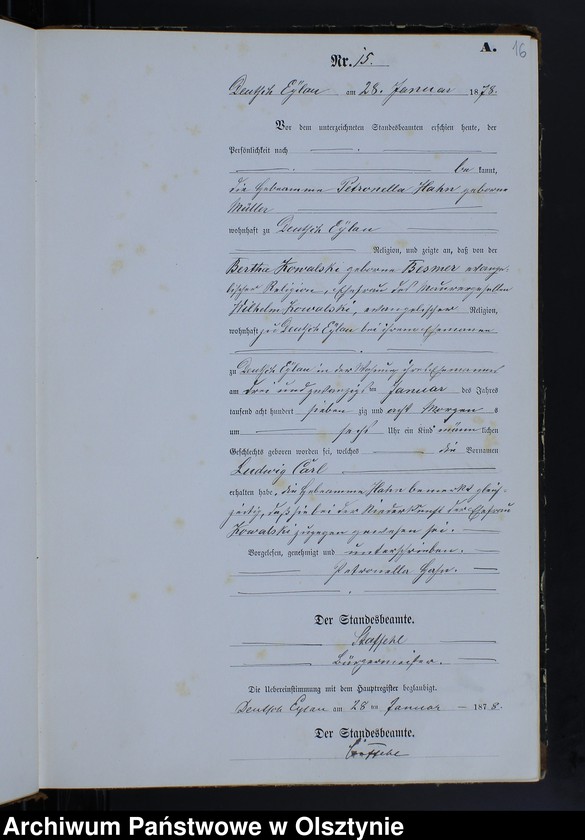 A.
16
Nr. 15.
Deutsch Eylau am 28. Januar 1878.
Vor dem unterzeichneten Standesbeamten erschien heute, der
Persönlichkeit nach
be kannt,
die Hebeamme Petronella Hahn geborne
Müller
wohnhaft zu Deutsch Eylau
Religion, und zeigte an, daß von der
Bertha Kowalski geborne evange-
lischer Religion, Ehefrau des Maurergesellen
Wilhelm Kowalski, evangelischer Religion,
wohnhaft zu Deutsch Eylau bei ihrem Ehemanne
zu Deutsch Eylau in der Wohnung ihres Ehemannes
am drei und zwanzigs ten Januar des Jahres
tausend acht hundert sieben zig und acht Morgens
um sechs Uhr ein Kind männ lichen
Geschlechts geboren worden sei, welches die Vornamen
Ludwig Carl
erhalten habe, die Hebeamme Hahn bemerkt gleich-
zeitig, daß sie bei der Niederkunft der Ehefrau
Kowalski zugegen gewesen sei.
Vorgelesen, genehmigt und unterschrieben.
Petronella Hahn.
Der Standesbeamte.
Bürgermeister.
Die Uebereinstimmung mit dem Hauptregister beglaubigt.
Deutsch Eylau am 28 ten Januar 1878.
Der Standesbeamte.
Archiwum Państwowe w Olsztynie